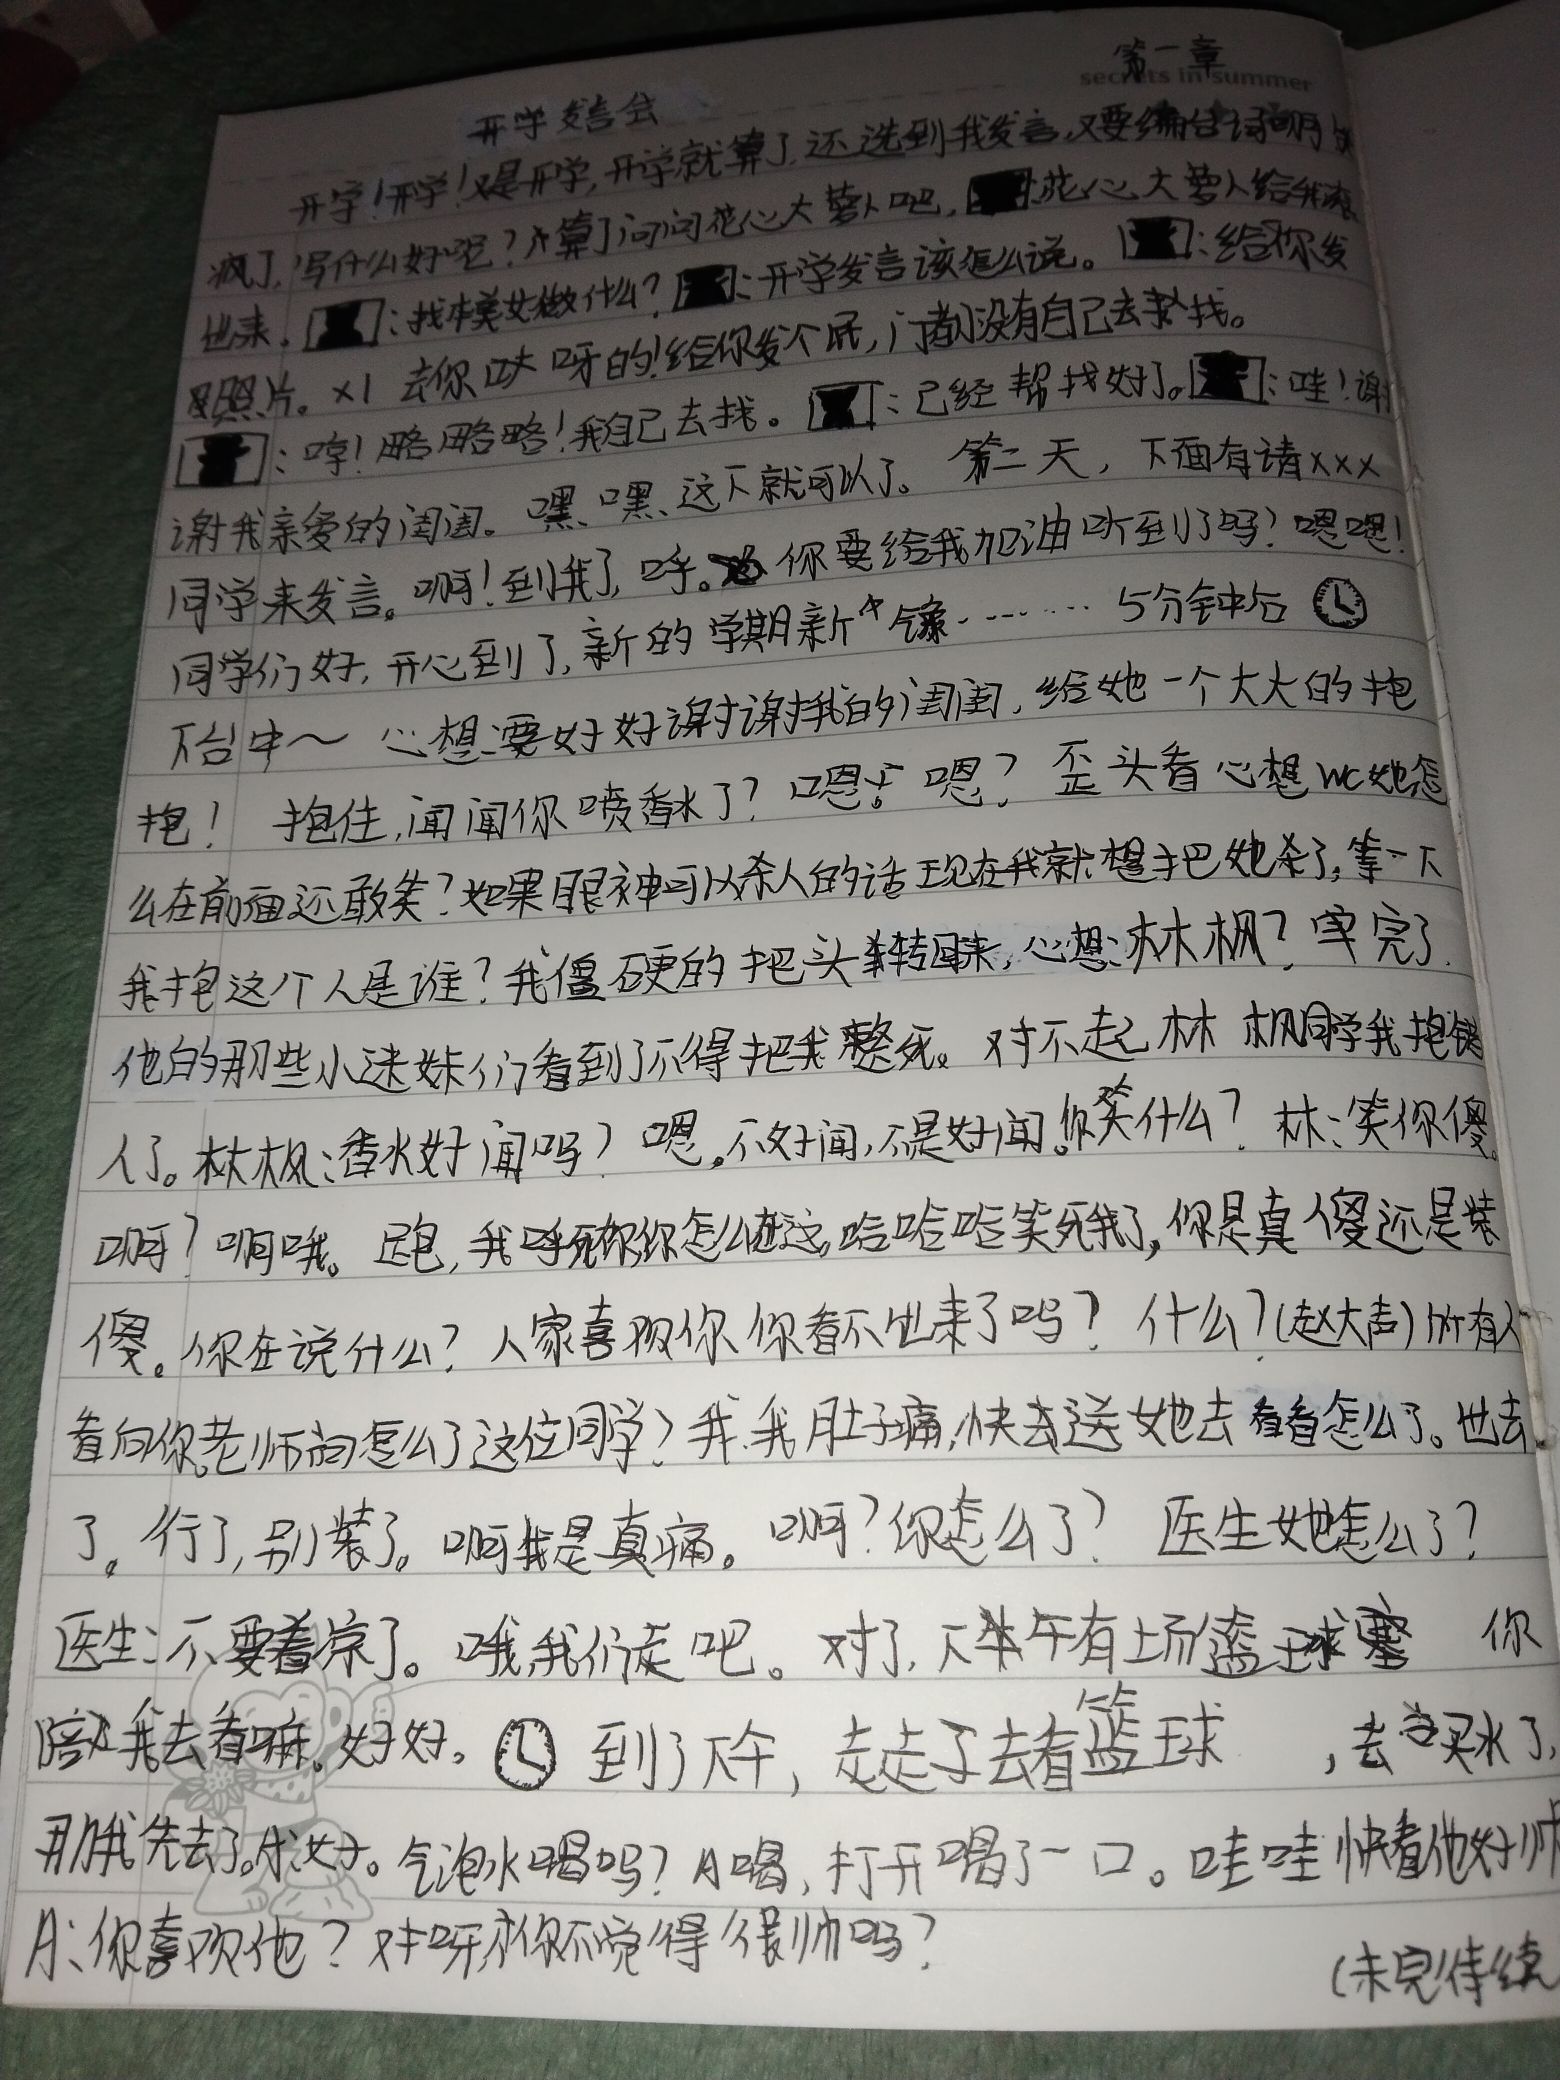 第一章
secrets in summer
开学发言会
开学!开学!又是开学,开学就算了,还选到我发言,又要编台词啊
疯了,写什么好呢?算了问问花心大萝卜吧,花心大萝卜给我滚
出来。:找本美女做什么?:开学发言该怎么说。:给你发
照片。x1 去你哒呀的!给你发个屁,门都没有自己去找。
:哼!略略略!我自己去找。:已经帮找好了。:哇!谢
谢我亲爱的闺闺。嘿、嘿、这下就可以了。 第二天,下面有请xxx
同学来发言。啊!到我了,呼。你要给我加油听到了吗?嗯嗯!
同学们好,开心到了,新的学期新气象…… 5分钟后
下台中～ 心想:要好好谢谢我的闺闺,给她一个大大的抱
抱! 抱住,闻闻你喷香水了?嗯 嗯? 歪头看心想wc她怎
么在前面还敢笑?如果眼神可以杀人的话现在我就想把她杀了,等一下
我抱这个人是谁?我僵硬的把头转回来,心想:林枫?完了
他的那些小迷妹们看到了不得把我整死。对不起林枫同学我抱错
人了。林枫:香水好闻吗?嗯。不好闻,不是好闻。你笑什么? 林:笑你傻。
啊?啊哦。跑,我你怎么在这,哈哈哈笑死我了,你是真傻还是装
傻。你在说什么?人家喜欢你你看不出来了吗? 什么?(超大声)所有人
看向你,老师问怎么了这位同学?我、我肚子痛,快去送她去看看怎么了。出去
了。行了,别装了。啊我是真痛。啊?你怎么了? 医生她怎么了?
医生:不要着凉了。哦,我们走吧。对了,下午有场篮球赛 你
陪我去看嘛。好好。 到了下午,走走子去看篮球 ,去买水了,
那我先去了。好。气泡水喝吗?A喝,打开喝了一口。哇哇快看他好帅
A:你喜欢他? 对呀,你不觉得很帅吗?
(未完!待续